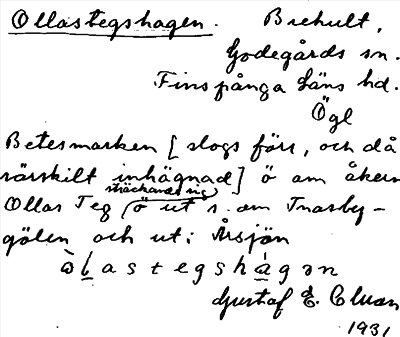 Ollastegshagen. Brehult,
Godegårds sn.
Finspånga läns hd.
Ögl
Betesmarken [slogs förr, och då
särskilt inhägnad] ö om åkern
sträckande sig
Ollas Teg ö ut s. om Tnasby-
gölen och ut i Årsjön
Gustaf E. Cluan
1931